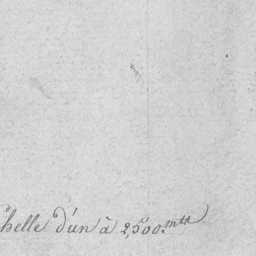 helle d'un à 2,500.mts